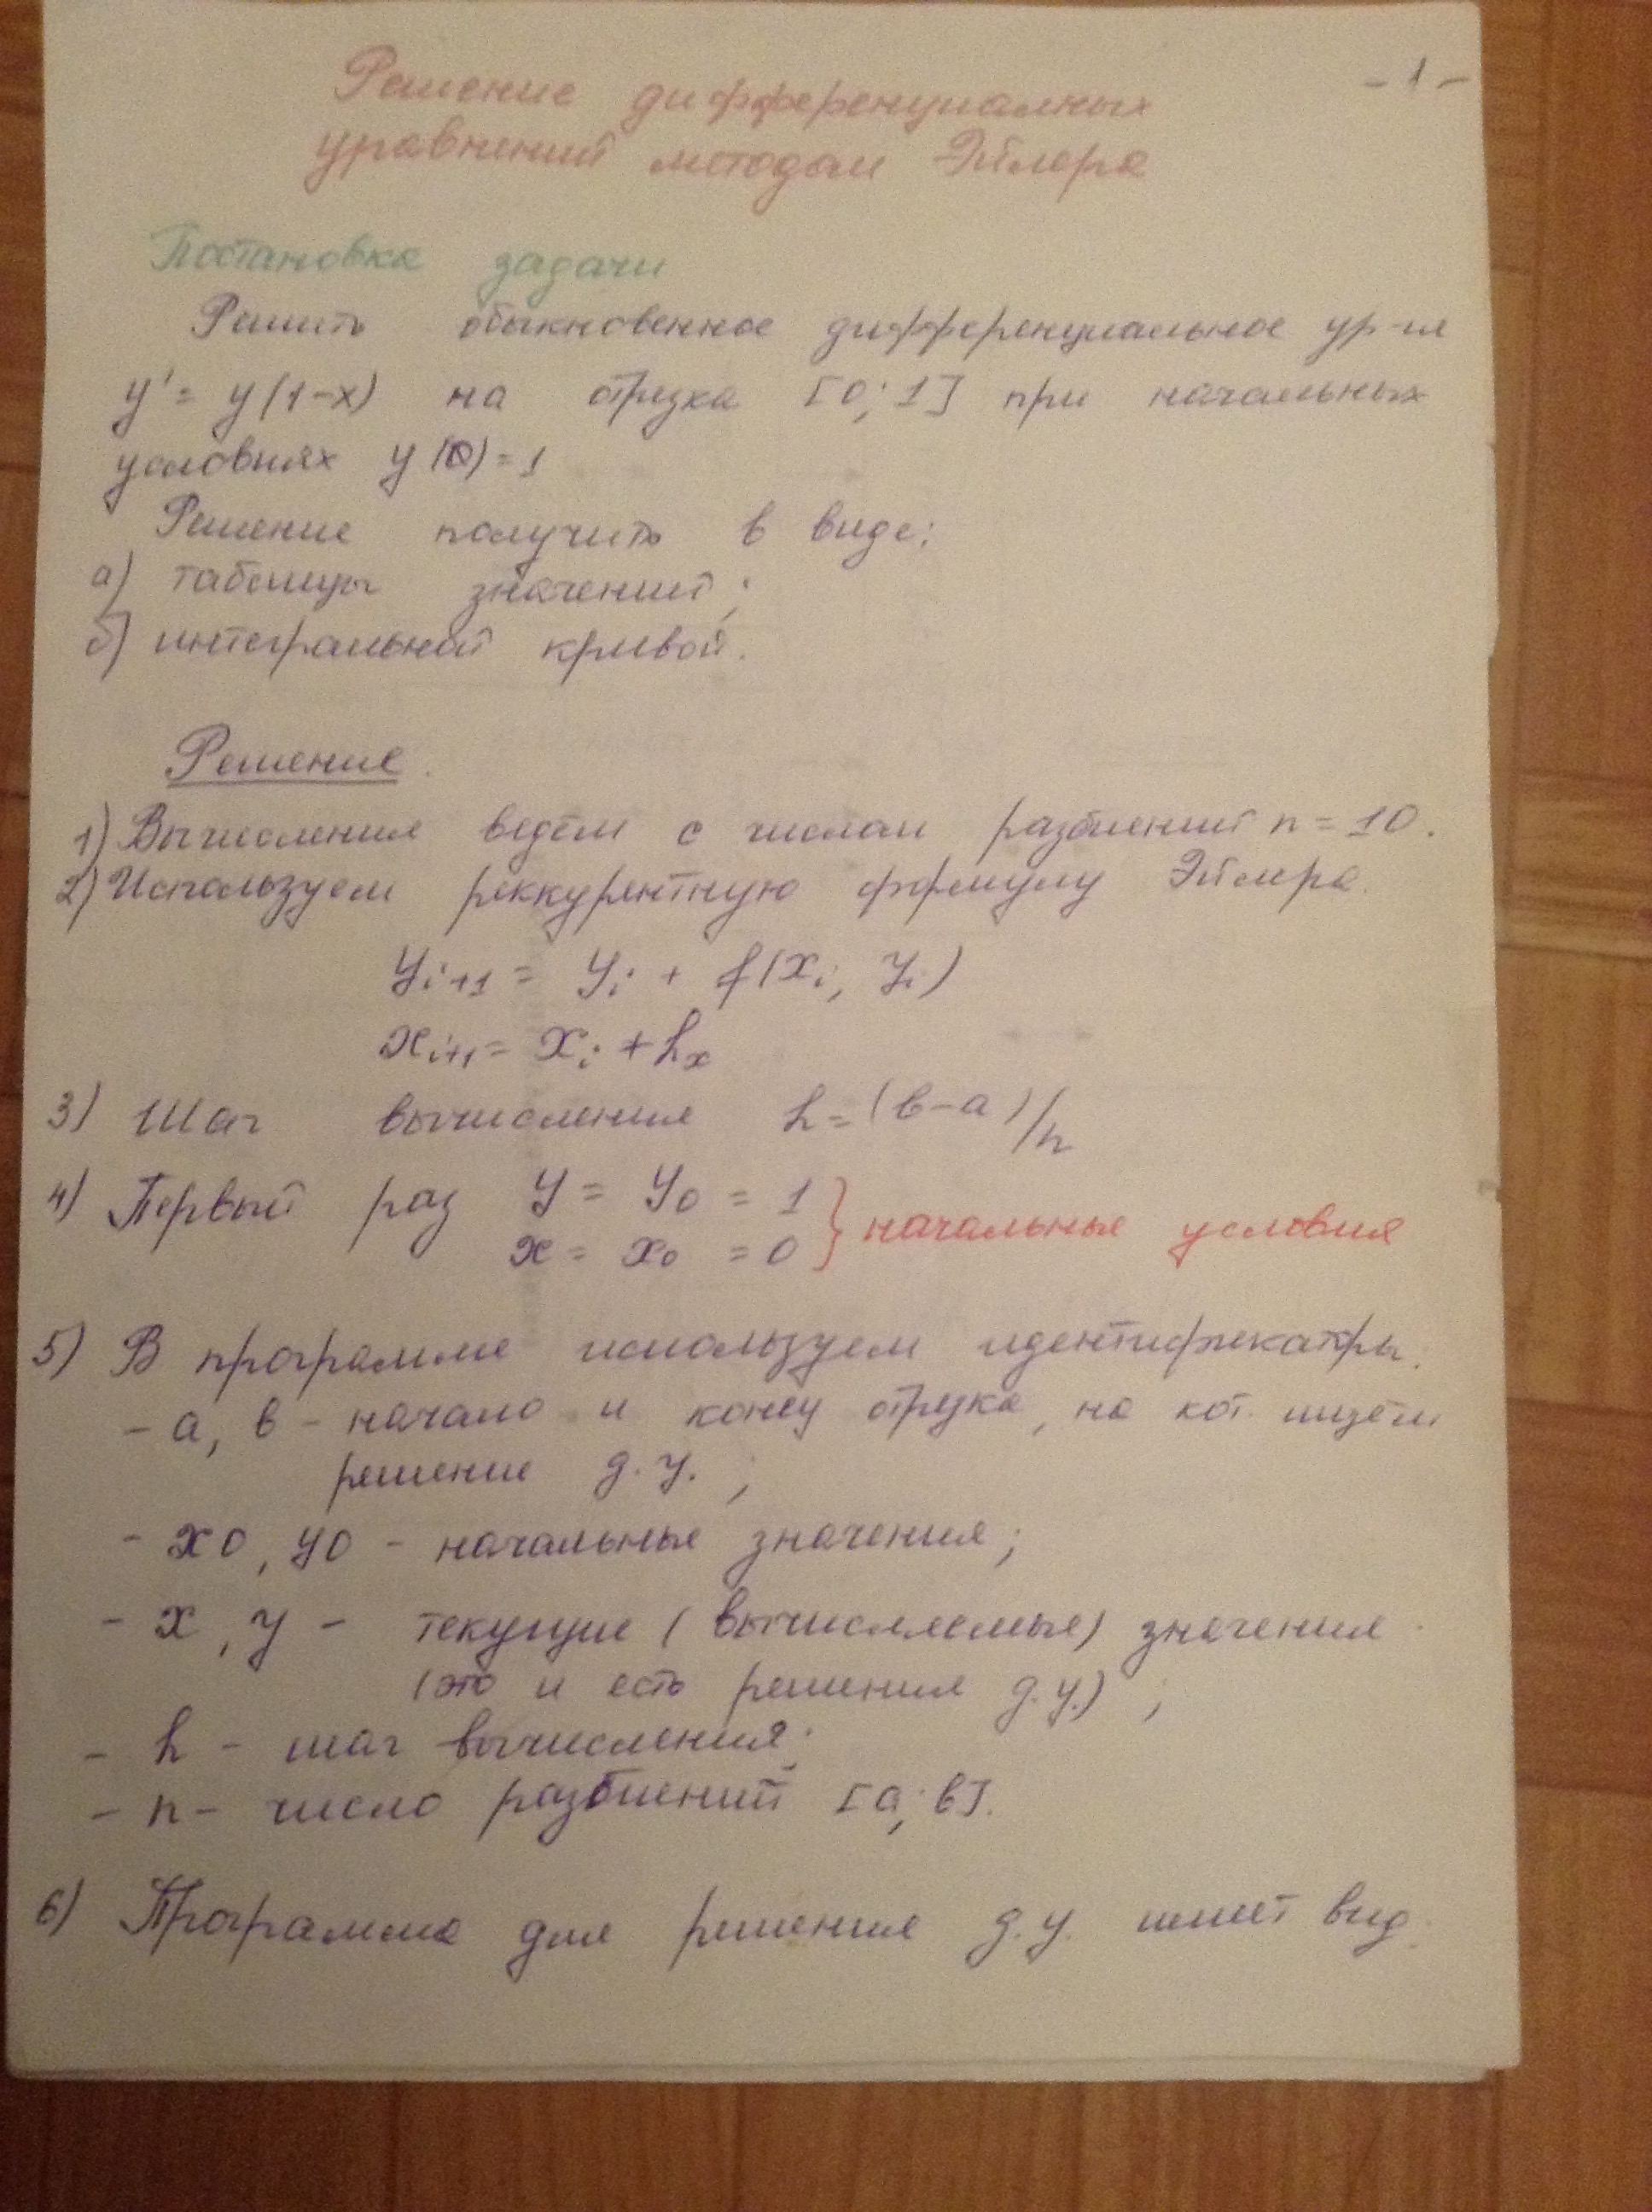 - 1 -
Решение дифференциалных
уравнений методом Эйлера
Постановка задачи
Решить обыкновенное дифференциальное ур-ия
y' = y(1-x) на отрезка [0; 1] при начальных
условиях y(0)=1
Решение получить в виде:
а) таблицы значений;
б) интегральной кривой.
Решение.
1) Вычисления ведём с числом разбиений n = 10.
2) Используем реккурентную формулу Эйлера.
yᵢ₊₁ = yᵢ + f(xᵢ, yᵢ)
xᵢ₊₁ = xᵢ + hₓ
3) Шаг вычисления h = (в-а)/n
4) Первый раз y = y₀ = 1
x = x₀ = 0 } начальные условия
5) В программе используем идентификаторы:
- а, в - начало и конец отрезка, на кот. ищем
решение д.у. ;
- x0, y0 - начальные значения;
- x, y - текущие (вычисляемые) значения
(это и есть решения д.у.) ;
- h - шаг вычисления;
- n - число разбиений [а; в].
6) Программа для решения д.у. имеет вид.